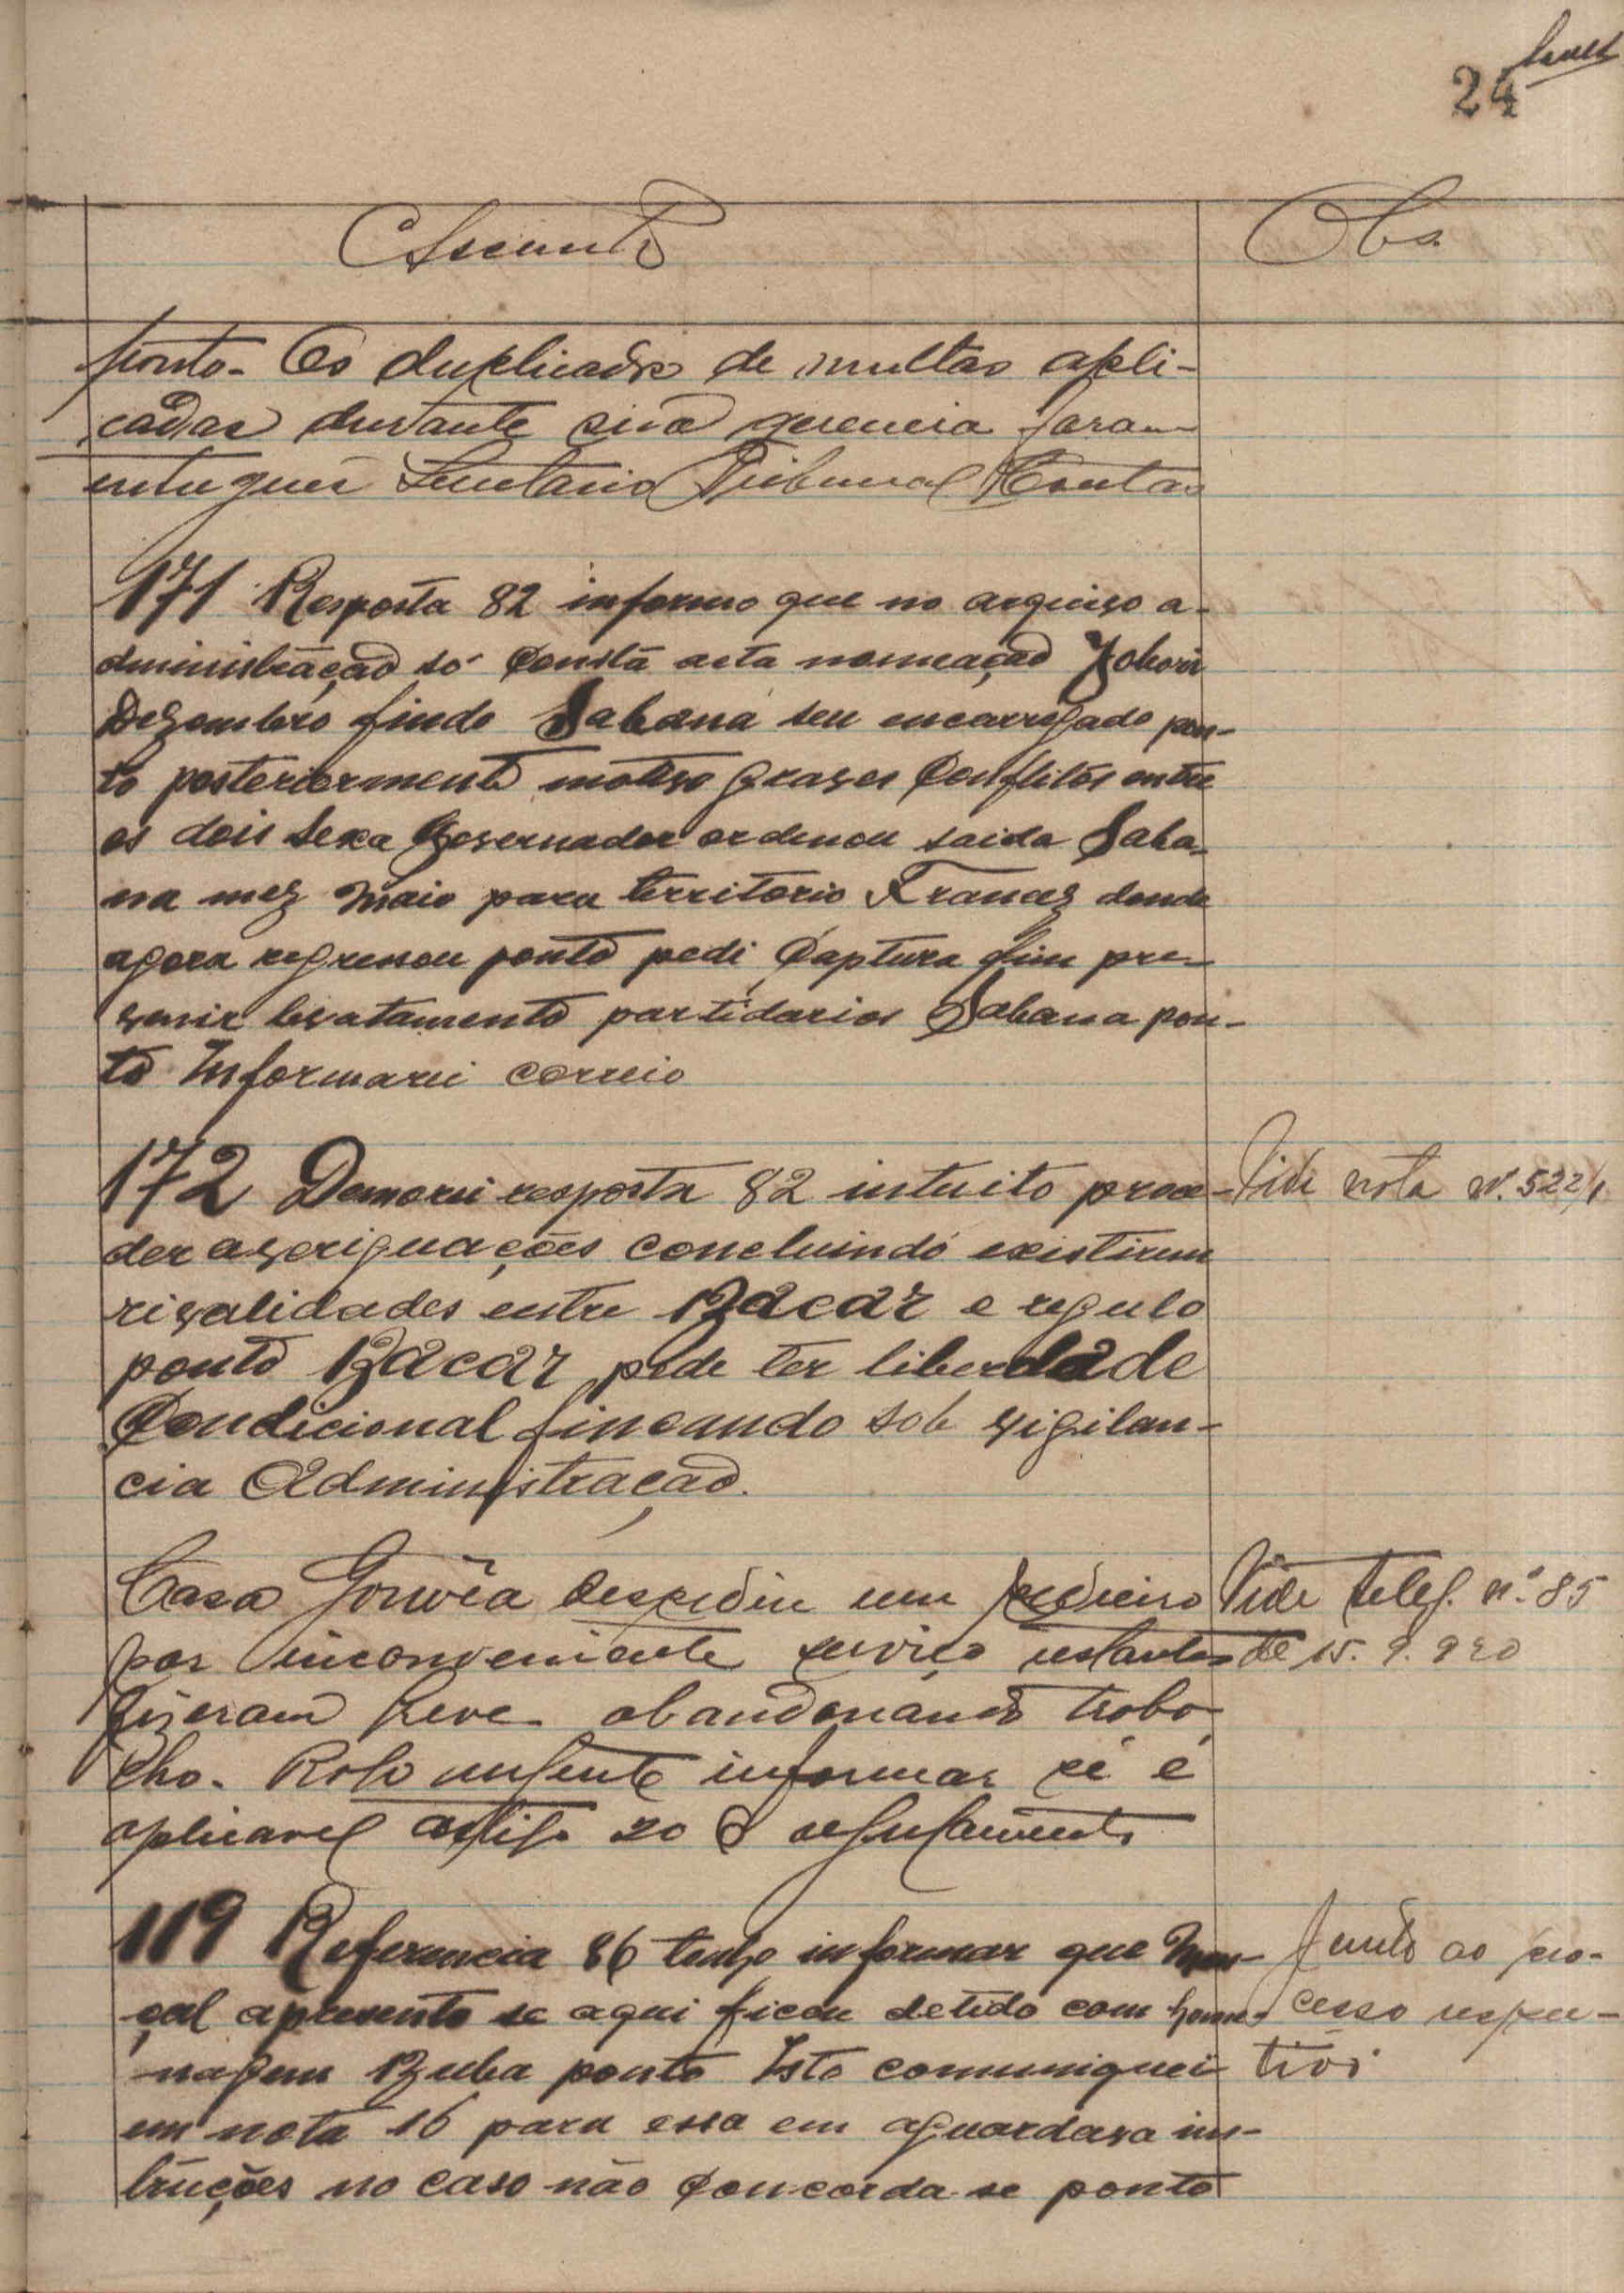 24
Assunto
Obs
ponto. Os duplicados de multas apli-
cadas durante sua gerencia foram
entregues Secretario Tribunal Contas
171 Resposta 82 informo que no arquivo a-
dministração só consta acta nomeação
Dezembro findo Sabana seu encarregado pon-
to posteriormente motivo graves conflitos entre
os dois sexa Governador ordenou saida Saba-
na mez Maio para territorio Francez donde
agora regressou ponto pedi captura fim pre-
venir levatamento partidarios Sabana pon-
to Informarei correio
172 Demorei resposta 82 intuito proce-
der averiguações concluindo existirem
rivalidades entre Bacar e regulo
ponto Bacar pode ter liberdade
Condicional fincando sob vigilan-
cia Administração.
Vide nota Nº. 522/1
Casa Gouvêa despediu um pedreiro
por inconveniente serviço restantes
fizeram greve abandonando traba-
lho. Rogo urgente informar se é
aplicavel artigo 20 do regulamento
Vide teleg. nº. 85
de 15. 9. 920
119 Referencia 86 tenho informar que
apresento se aqui ficou detido com home-
nagem Buba ponto Isto comuniquei
em nota 16 para essa em aguardava ins-
truções no caso não concorda-se ponto
Junto ao pro-
cesso respec-
tivo